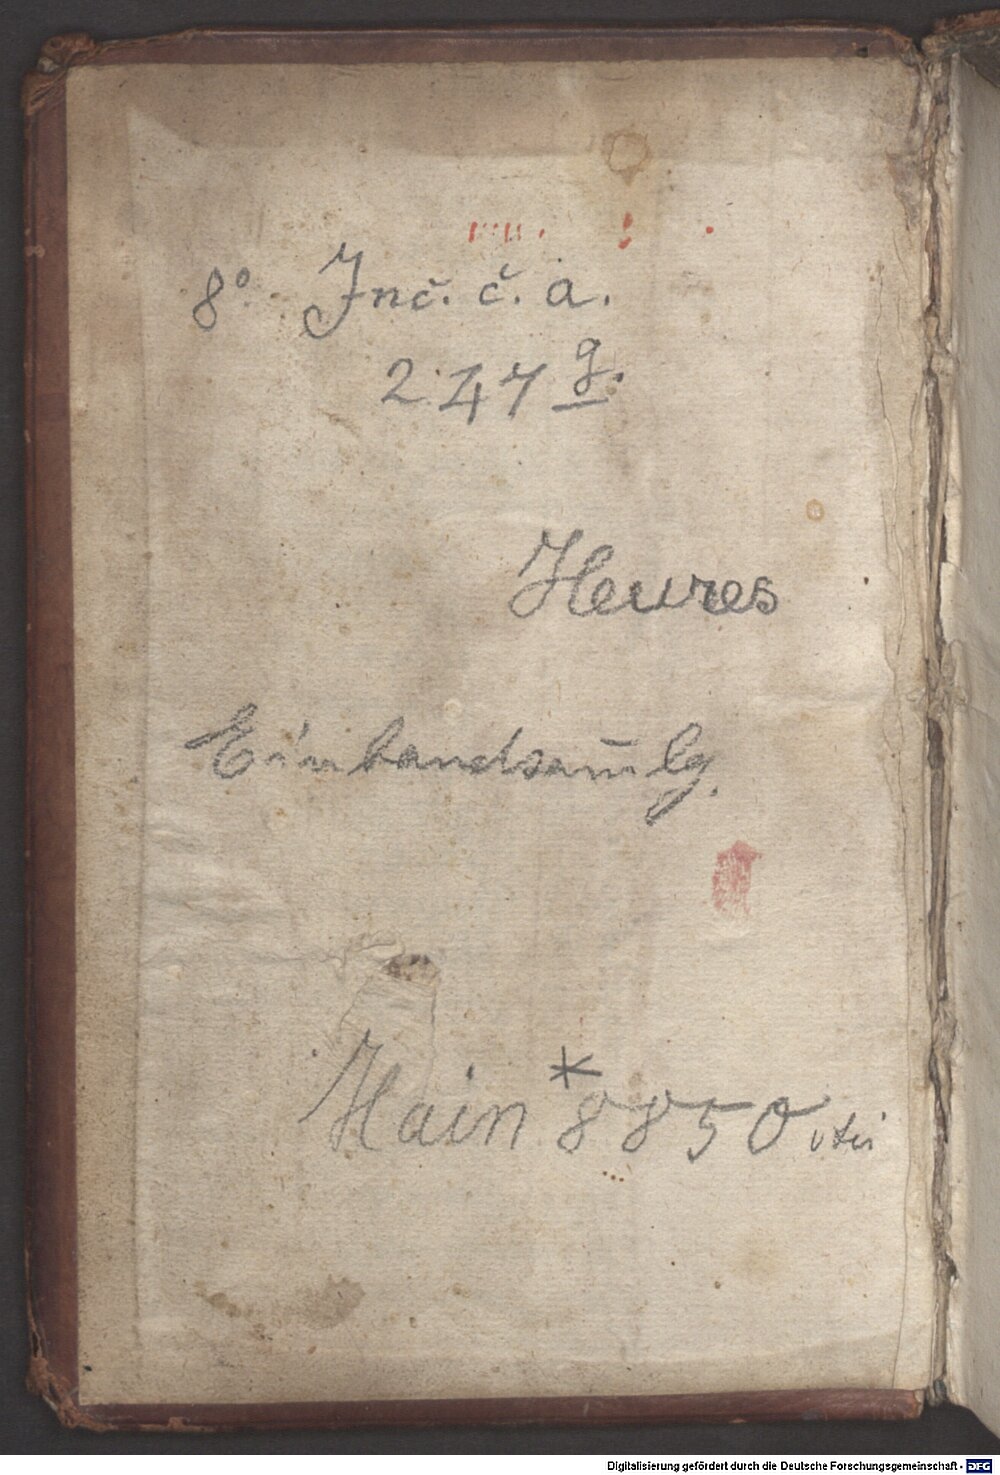 8° Inc. c. a.
247 g.
Heures
Einbandsam̄lg.
Hain *8850
Digitalisierung gefördert durch die Deutsche Forschungsgemeinschaft - DFG